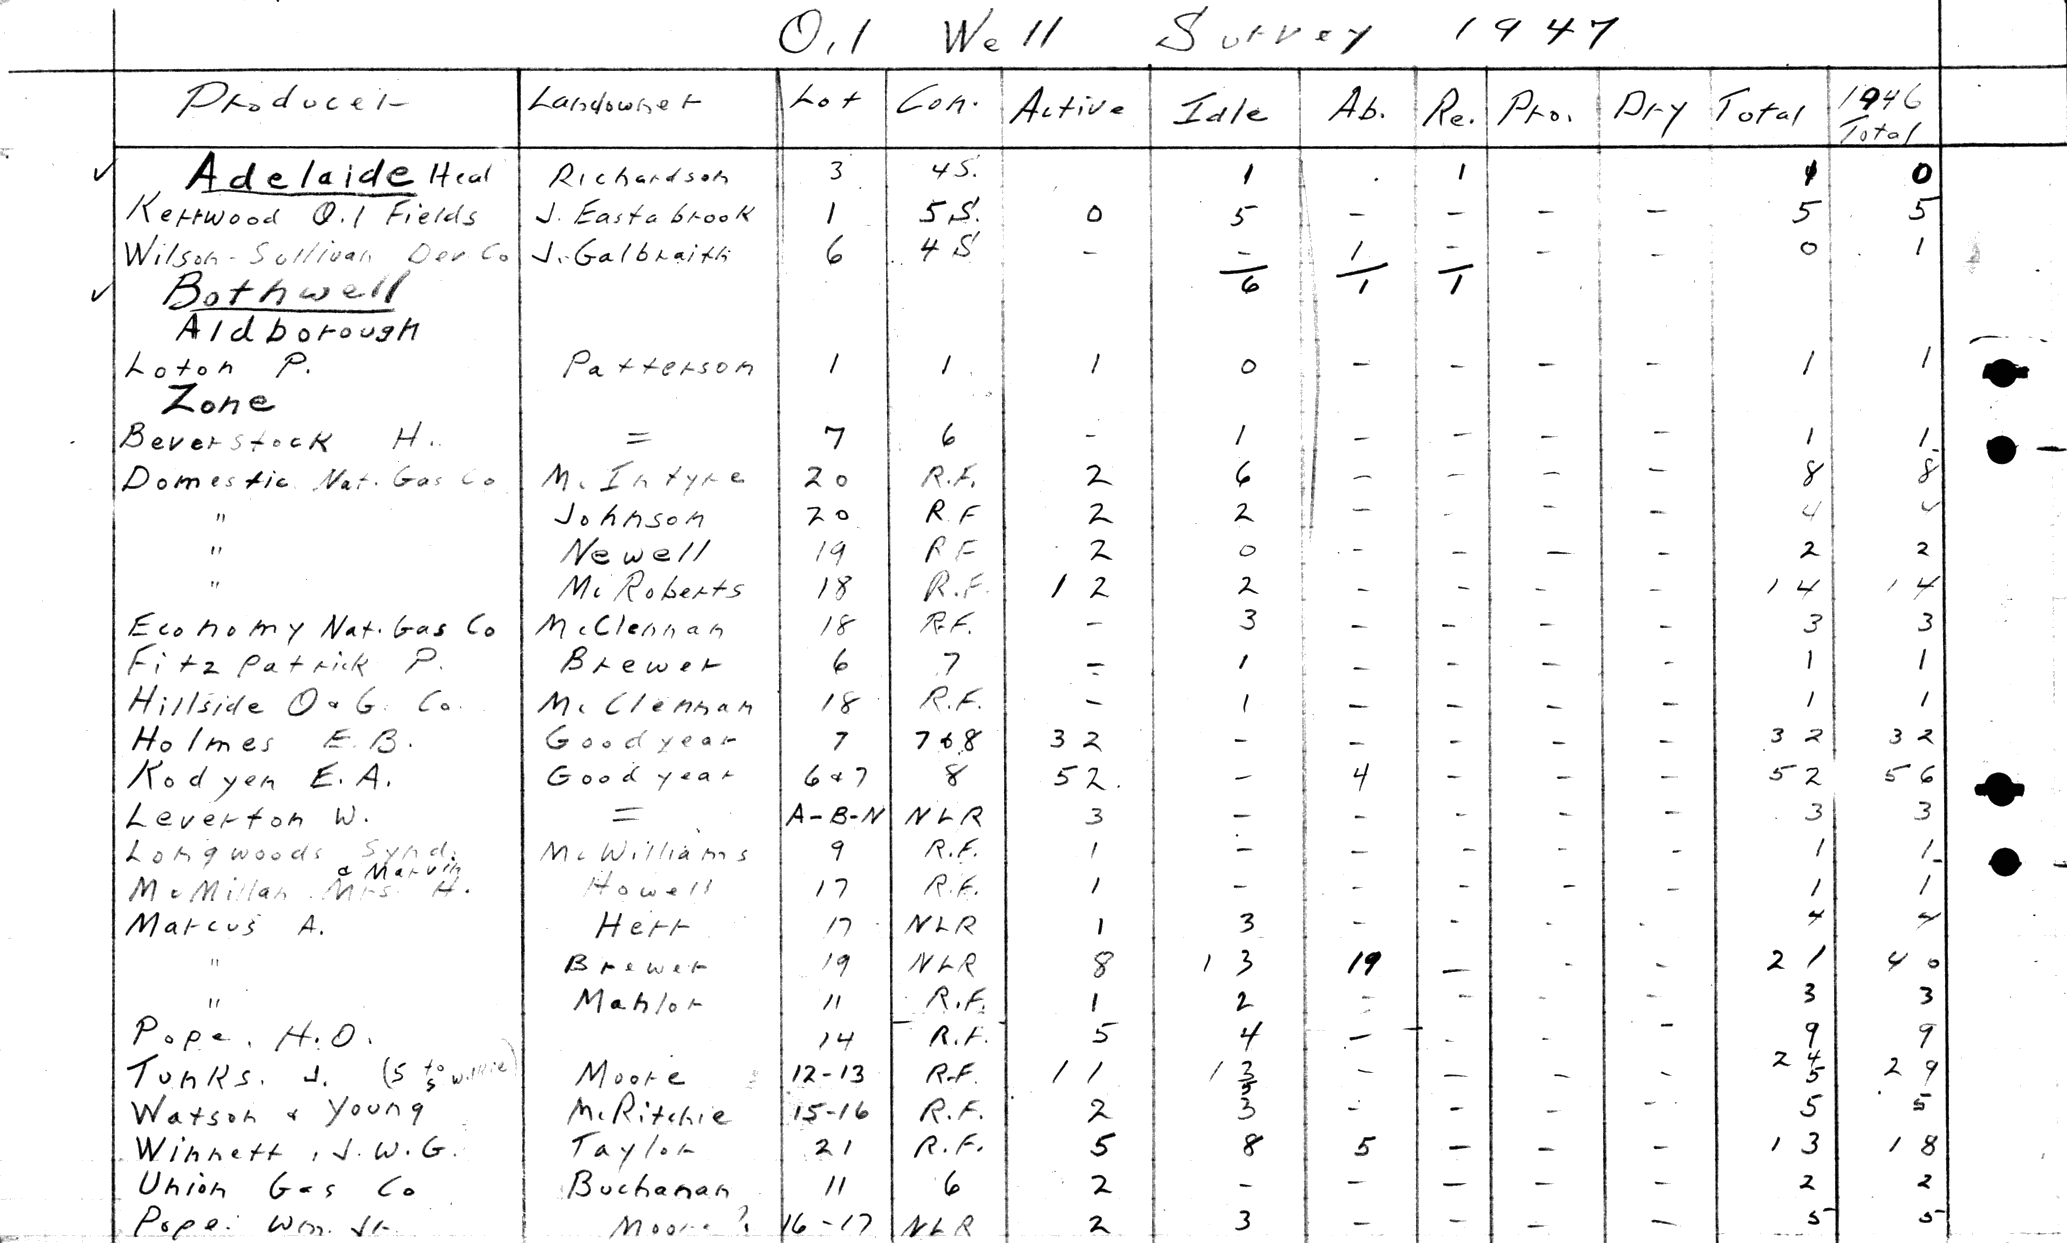 Oil Well Survey 1947
Producer Landowner Lot Con. Active Idle Ab. Re. Pro. Dry Total 1946 Total
✓ Adelaide Heal Richardson 3 4 S. 1 . 1 1 0
Kerrwood Oil Fields J. Eastabrook 1 5 S. 0 5 - - - - 5 5
Wilson-Sullivan Dev Co J. Galbraith 6 4 S - - 1 - - - 0 1
✓ Bothwell 6 1 1
Aldborough
Loton P. Patterson 1 1 1 0 - - - - 1 1
Zone
Beverstock H. = 7 6 - 1 - - - - 1 1
Domestic Nat. Gas Co McIntyre 20 R.F. 2 6 - - - - 8 8
" Johnson 20 R F 2 2 - - - - 4 4
" Newell 19 R F 2 0 - - - - 2 2
" McRoberts 18 R.F. 12 2 - - - - 14 14
Economy Nat. Gas Co McClennan 18 R.F. - 3 - - - - 3 3
Fitzpatrick P. Brewer 6 7 - 1 - - - - 1 1
Hillside O & G. Co. McClennan 18 R.F. - 1 - - - - 1 1
Holmes E. B. Goodyear 7 7 & 8 32 - - - - - 32 32
Kodyen E. A. Goodyear 6 & 7 8 52 - 4 - - - 52 56
Leverton W. = A-B-N NLR 3 - - - - - 3 3
Longwoods Synd. McWilliams 9 R.F. 1 - - - - - 1 1
& Marvin
McMillan Mrs. H. Howell 17 R.F. 1 - - - - - 1 1
Marcus A. Herr 17 NLR 1 3 - - - - 4 4
" Brewer 19 NLR 8 13 19 - - - 21 40
" Mahlor 11 R.F. 1 2 - - - - 3 3
Pope, H. O. 14 R.F. 5 4 - - - - 9 9
Tunks, J. (5 to Moore 12-13 R.F. 11 13 - - - - 24 29
5 5
Watson & Young McRitchie 15-16 R.F. 2 3 - - - - 5 5
Winnett, J. W. G. Taylor 21 R.F. 5 8 5 - - - 13 18
Union Gas Co Buchanan 11 6 2 - - - - - 2 2
Pope Wm. Jr. Moore? 16-17 NLR 2 3 - - - - 5 5